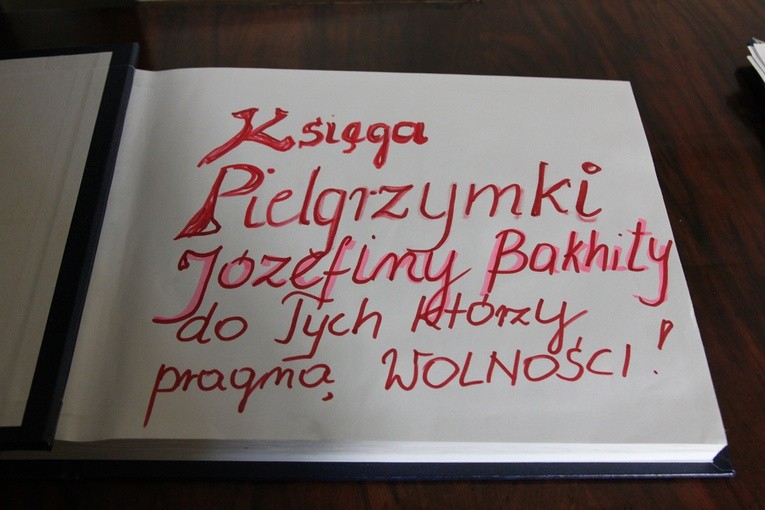 Księga
Pielgrzymki
Józefiny Bakhity
do Tych którzy
pragną WOLNOŚCI!